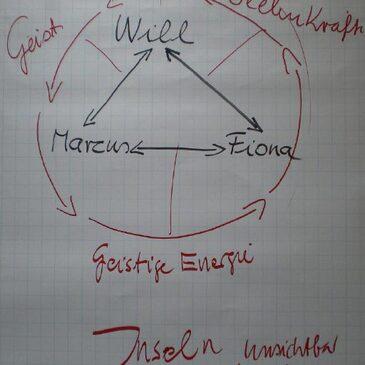 Seelenkraft
Geist
Will
Marcus Fiona
Geistige Energie
Inseln unsichtbar